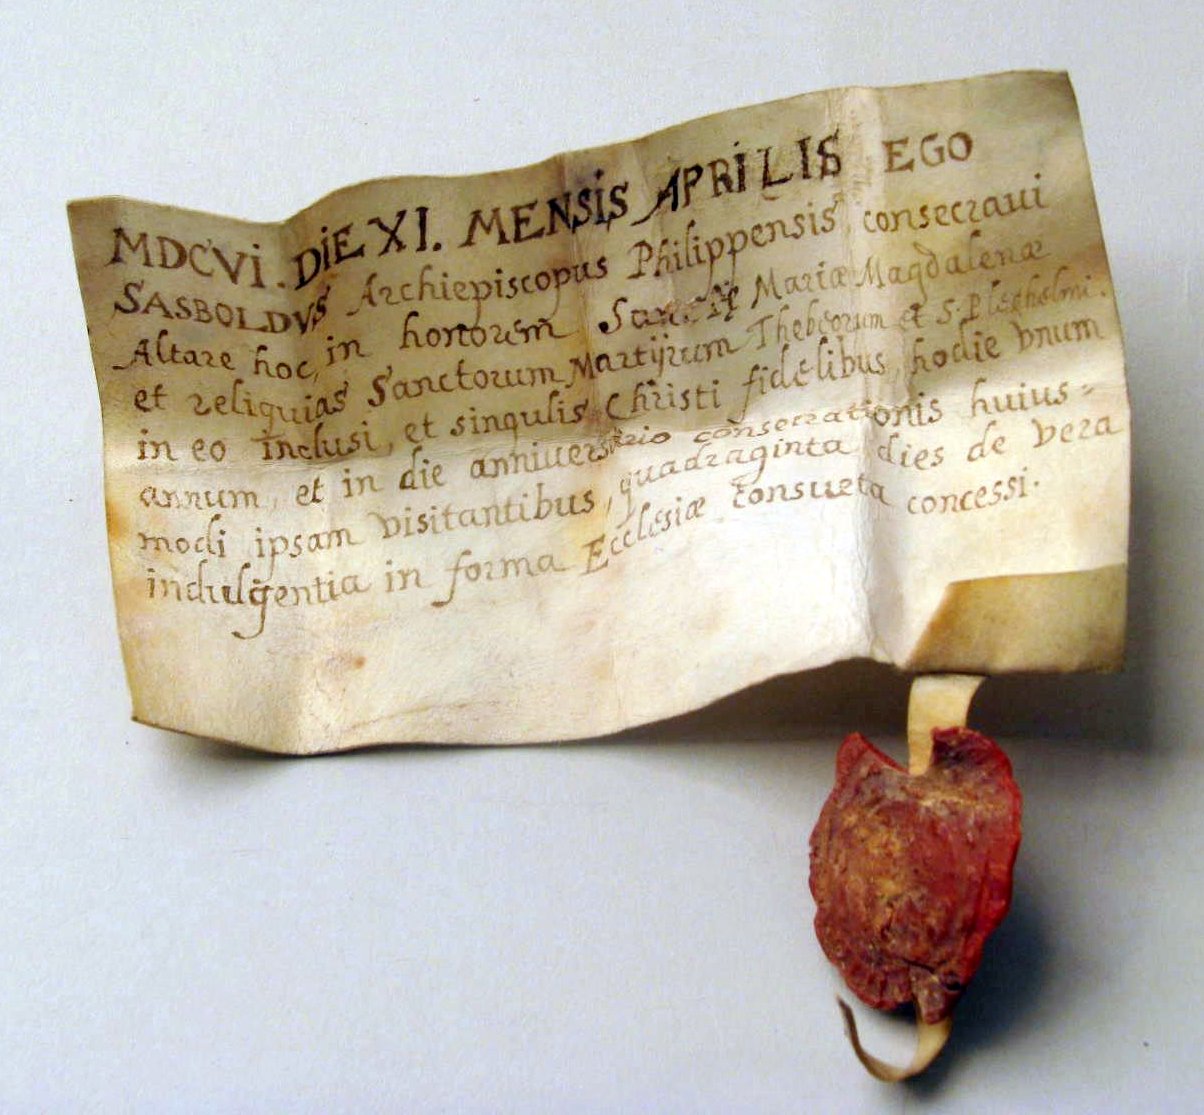 MDCVI. DIE XI. MENSIS APRILIS EGO
SASBOLDVS Archiepiscopus Philippensis consecraui
Altare hoc, in honorem Sanctæ Mariæ Magdalenæ
et reliquias Sanctorum Martyrum Thebeorum et S. Plechelmi.
in eo inclusi, et singulis Christi fidelibus, hodie vnum
annum, et in die anniuersario consecrationis huius-
modi ipsam visitantibus, quadraginta dies de vera
indulgentia in forma Ecclesiæ consueta concessi.